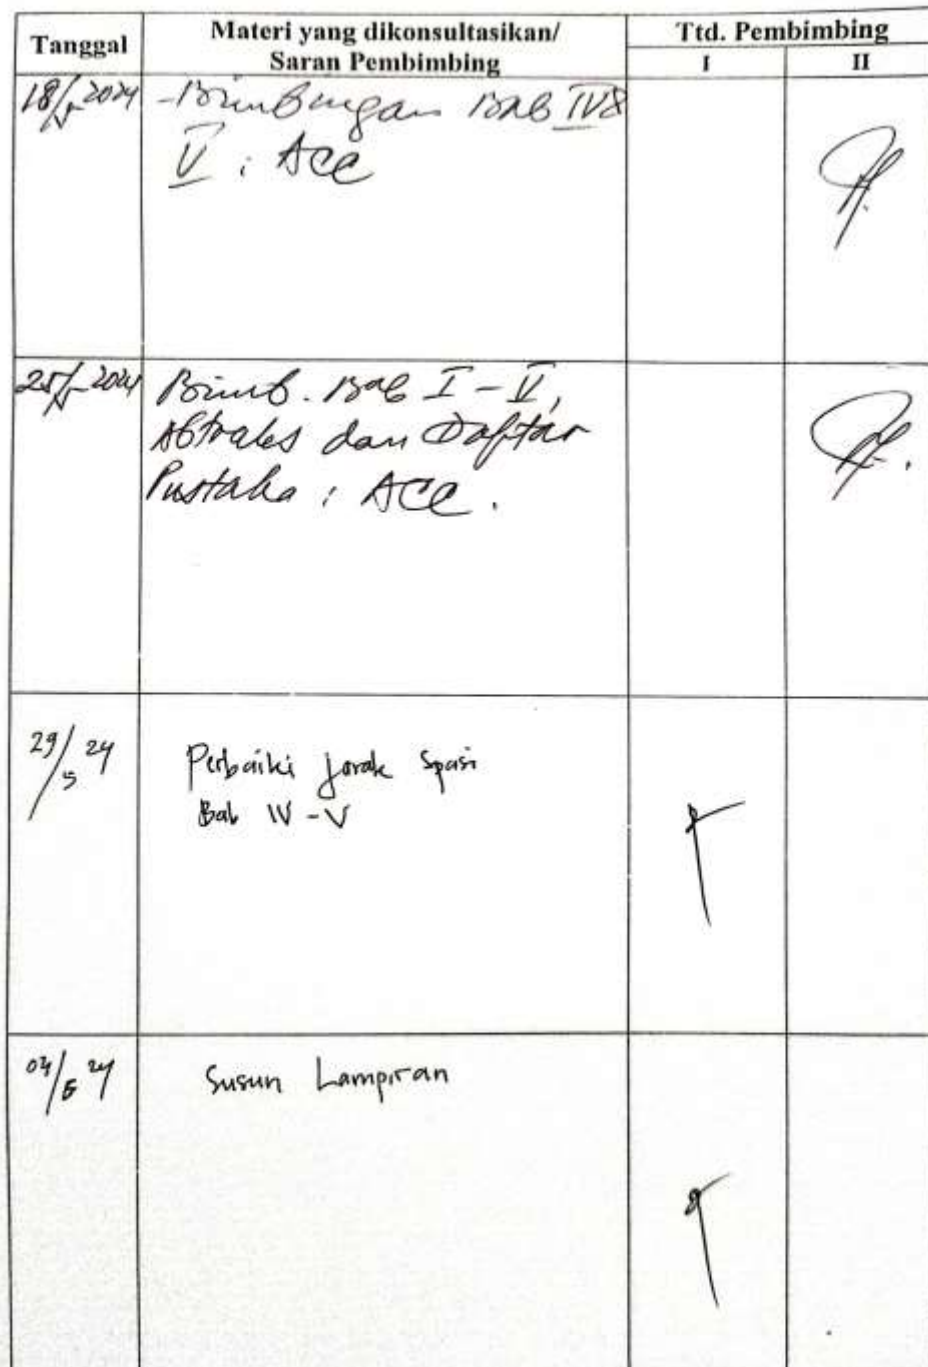 Tanggal
Materi yang dikonsultasikan/
Saran Pembimbing
Ttd. Pembimbing
I
II
18/5 2024
- Bimbingan Bab IV &
V : ACC
25/5 2024
Bimb. Bab I - V,
Abtraks dan Daftar
Pustaka : ACC.
29/5 24
Perbaiki jarak spasi
Bab IV - V
24
Susun Lampiran